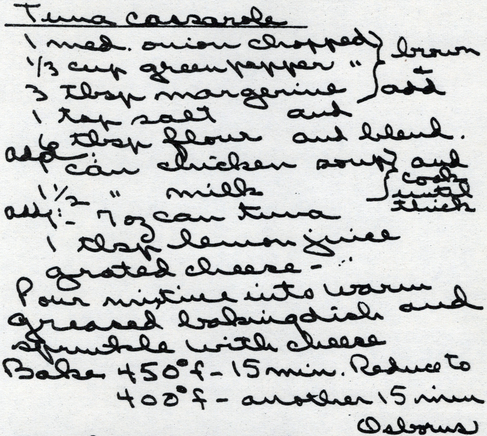 Tuna cassarole
1 med. onion chopped } brown
1/3 cup green pepper " } +
3 tbsp margerine } add
1 tsp salt and
6 tbsp flour and blend.
add 1 can chicken soup } and
1 1/2 " milk } cook until thick
add:- 7 oz can tuna
1 tbsp lemon juice
grated cheese -
Pour mixture into warm
greased baking dish and
sprinkle with cheese
Bake 450°f - 15 min. Reduce to
400°f - another 15 min
Osborns